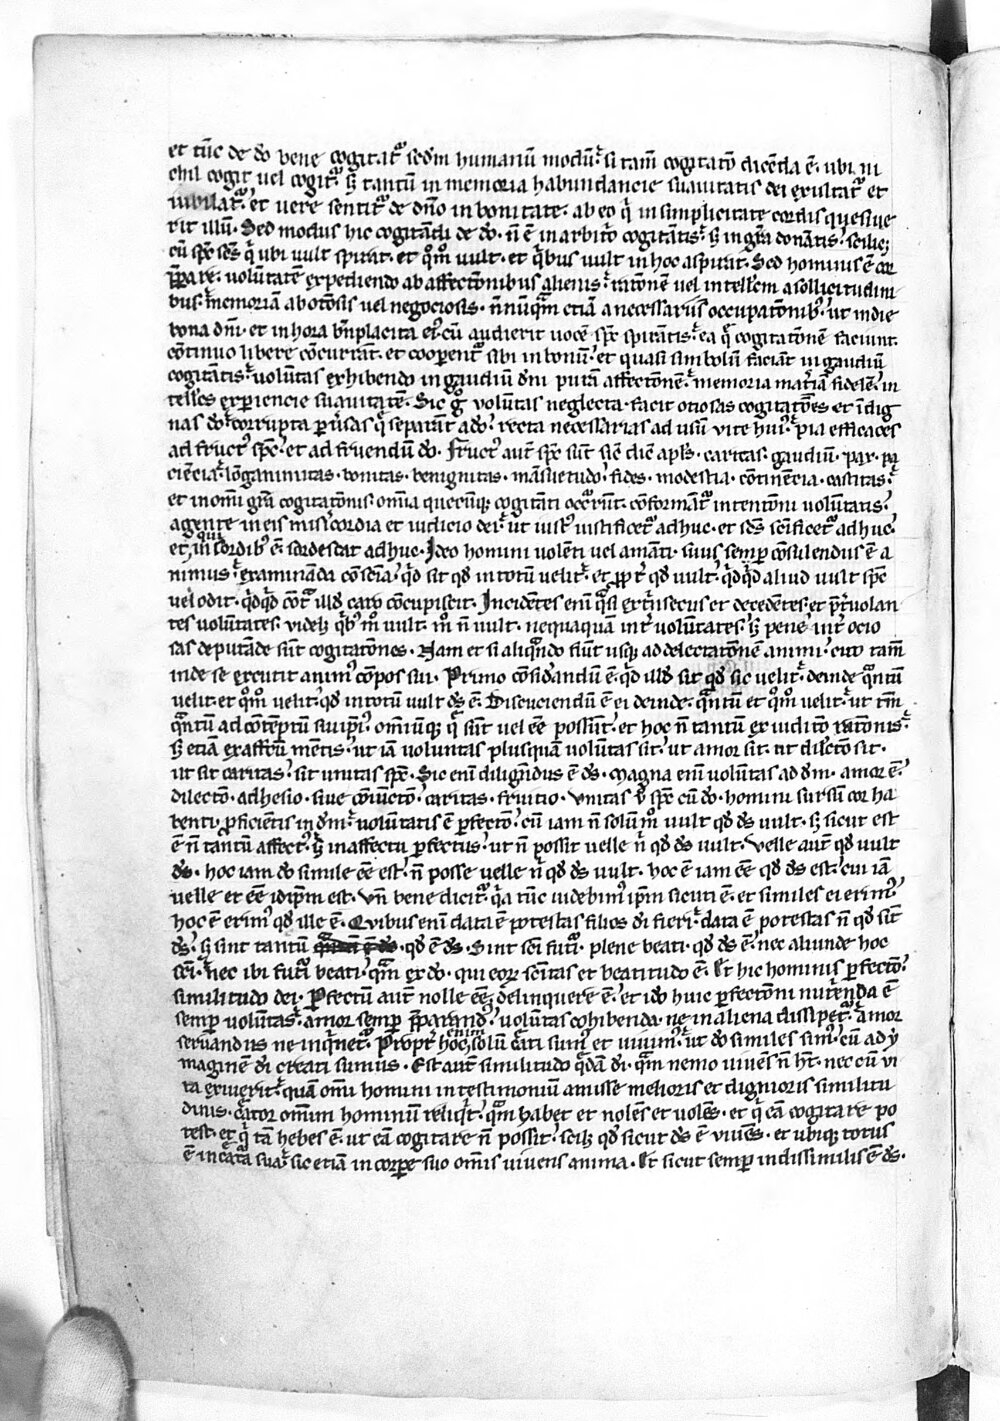 et tūc de dō bene cogitat᷑ scd̄m humanū modū. si tam̄ cogitatō dicēda ē. ubi ni
chil cogit uel cogit᷑. s; tantū in memoria habundancie suauitatis dei exultat᷑ et
iubilat᷑. et uere sentit᷑ de dn̄o in bonitate. ab eo q̄ in simplicitate cordis quesiue
rit illū. Sed modus hic cogitādi de dō. n̄ ē in arbit̄o cogitātis. s; in gr̄a donātis. scilic;
cū sp̄c sc̄s q̄ ubi uult spirat. et qōm uult. et qⁱbus uult in hoc aspirat. Sed hominis ē cor
p̄pare. uolūtatē expediendo ab affectōnibus alienis. ratōnē uel intellc̄m a sollicitudini
bus. memoriā ab otiosis uel negociosis. n̄nūqām etiā a necessariis occupatōnib᷒. ut in die
bona dn̄i. et in hora bn̄placita ei᷒. cū audierit uocē sp̄c spirātis. ea q̄ cogitatōnē faciunt
cōtinuo libere cōcurrāt. et cooperent᷑ sibi in bonū. et quasi simbolū faciāt in gaudiū
cogitātis. uolūtas exhibendo in gaudiū dn̄i purā affectōnē. memoria mat̄iā fidelē. in
tell̄cs experiencie suauitatē. Sic g° uolūtas neglecta. facit otiosas cogitatōes et īdig
nas dō. corrupta pr̄uersas q̄ separāt a dō. recta necessarias ad usū uite hui᷒. pia efficaces
ad fruct᷒ sp̄c. et ad fruendū dō. Fruct᷒ aūt sp̄c sūt sic̄ dic̄ apl̄s. caritas. gaudiū. pax. pa
ciēcia. lōganimitas. bonitas. benignitas. māsuetudo. fides. modestia. cōtinēcia. castitas.
et in om̄i gr̄a cogitatōnis. om̄ia quecūq; cogitāti occr̄rūt. cōformāt᷑ intentōni uolūtatis.
agente in eis mis̄icordia et iudicio dei. ut iust᷒ iustificet᷑ adhuc. et sc̄s sc̄ificet᷑ adhuc.
et qui in sordib᷒ ē sordescat adhuc. Ideo homini uolēti uel amāti. suus semp̄ cōsulendus ē a
nimus. examināda cōsciā. qⁱd sit qd̄ in totū uelit. et ꝓpt̄ qd̄ uult. qⁱdqⁱd aliud uult sp̄c
uel odit. qⁱdqⁱd cōt̄ illd̄ caro cōcupiscit. Incidētes eni᷒ qāsi extⁱnsecus et decedētes. et p̄t̄uolan
tes uolūtates. videlz qⁱb᷒ m° uult. m° n̄ uult. nequaquā int̄ uolūtates. s; pene int̄ ocio
sas deputāde sūt cogitatōnes. Nam et si aliqāndo fiūt usq; ad delectatōnē animi. cito tam̄
inde se excutit anim᷒ cōpos sui. Primo cōsid̄andū ē. qⁱd illd̄ sit qd̄ sic uelit. deinde qāntū
uelit. et qōm uelit. qd̄ in totū uult ds̄ ē. Discuciendū ē ei deinde. qāntū et qōm uelit. ut tm̄
qāntū ad cōtēptū sui ip̄i᷒. om̄iūq; q̄ sūt uel ēē possūt. et hoc n̄ tantū ex iudic̄o ratōnis.
s; etiā ex affc̄tu mētis. ut iā uoluntas plusquā uolūtas sit. ut amor sit. ut dilc̄tō sit.
ut sit caritas. sit unitas sp̄c. Sic eni᷒ dilign̄dus ē ds̄. Magna eni᷒ uolūtas ad dm̄. amor ē.
dilectō. adhesio. siue cōiūctō. caritas. fruitio. vnitas v̄ sp̄c cū dō. homini sursū cor ha
benti. p̄ficiētis in dm̄. uolūtatis ē ꝑfectō. cū iam n̄ solū m° uult qd̄ ds̄ uult. s; sicut est
ē n̄ tantū affect᷒. s; in affectu ꝑfectus. ut n̄ possit uelle n̄ qd̄ ds̄ uult. Velle aut̄ qd̄ uult
ds̄. hoc iam dō simile ēē est. n̄ posse uelle n̄ qd̄ ds̄ uult. hoc ē iam ēē qd̄ ds̄ est. cui iā
uelle et ēē idip̄m est. Vn̄ bene dicit᷑. qāa tūc uidebim᷒ ip̄m sicuti ē. et similes ei erim᷒.
hoc ē erim᷒ qd̄ ille ē. Quibus eni᷒ data ē potestas filios dī fieri. data ē potestas n̄ qd̄ sīt
ds̄. s; sint tantū qd̄ ē ds̄. Sint sc̄i fut᷑i. plene beati. qd̄ ds̄ ē. nec aliunde hoc
sc̄i. nec ibi fut᷑i beati. qām ex dō. qui eoꝝ sc̄itas et beatitudo ē. Et hic hominis ꝑfectō.
similitudo dei. Pfectū aut̄ nolle ēē. delinquere ē. et idō huic ꝑfectōni nut̄enda ē
semp̄ uolūtas. amor semp̄ p̄parand᷒. uolūtas cohibenda. ne in aliena dissipet᷑. amor
seruandus ne inqⁱnet᷑. Propt̄ hoc enim solū c̄ati sum᷒ et uiuim᷒. ut dō similes sim᷒. cū ad y
maginē dī creati sumus. Est aut̄ similitudo qādā dī. qām nemo uiuēs n̄ ht̄. nec cū vi
ta exuerit. quam om̄i homini in testimoniū amisse melioris et dignioris similitu
dinis. c̄ator om̄ium hominū reliqⁱt. qām habet et nolēs et uolēs. et q̄ eā cogitare po
test. et q̄ tā hebes ē. ut eā cogitare n̄ possit. scilz qd̄ sicut ds̄ ē viuēs. et ubiq; totus
ē in c̄atā sua. sic etiā in corpore suo om̄is uiuens anima. Et sicut semp̄ indissimilis ē ds̄.